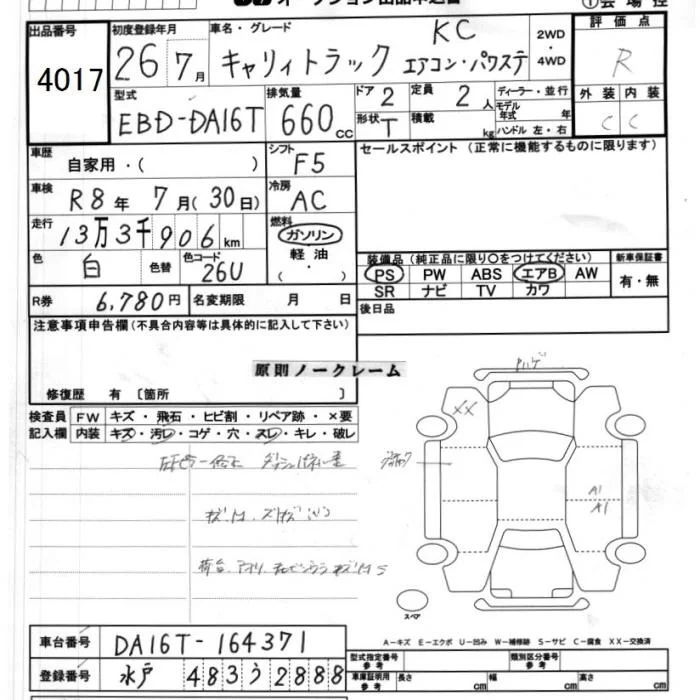 オークション出品申込書
①会場控
出品番号
4017
初度登録年月
26年7月
車名・グレード
KC
キャリィトラック エアコン・パワステ
2WD
・
4WD
評価点
R
外装 内装
C C
型式
EBD-DA16T
排気量
660cc
ドア 2
形状 T
定員 2人
積載 kg
ディーラー・並行
モデル年式 年
ハンドル 左・右
車歴
自家用・( )
シフト
F5
セールスポイント (正常に機能するものに限ります)
車検
R8年 7月(30日)
冷房
AC
走行
13万3千906km
燃料
ガソリン
軽油
( ・ )
色
白
色替
色コード
26U
装備品(純正品に限り○をつけてください)
PS PW ABS エアB AW
SR ナビ TV カワ
新車保証書
有・無
R券 6,780円
名変期限 月 日
後日品
注意事項申告欄(不具合内容等は具体的に記入して下さい)
原則ノークレーム
修復歴 有 [箇所 ]
検査員
記入欄
FW キズ・飛石・ヒビ割・リペア跡・×要
内装 キズ・汚レ・コゲ・穴・スレ・キレ・破レ
XX
A1
A1
スペア
A-キズ E-エクボ U-凹み W-補修跡 S-サビ C-腐食 XX-交換済
車台番号 DA16T-164371
登録番号 水戸 483う2888
型式指定番号
参考
類別区分番号
参考
車庫証明用
参考
長さ cm 幅 cm 高さ cm